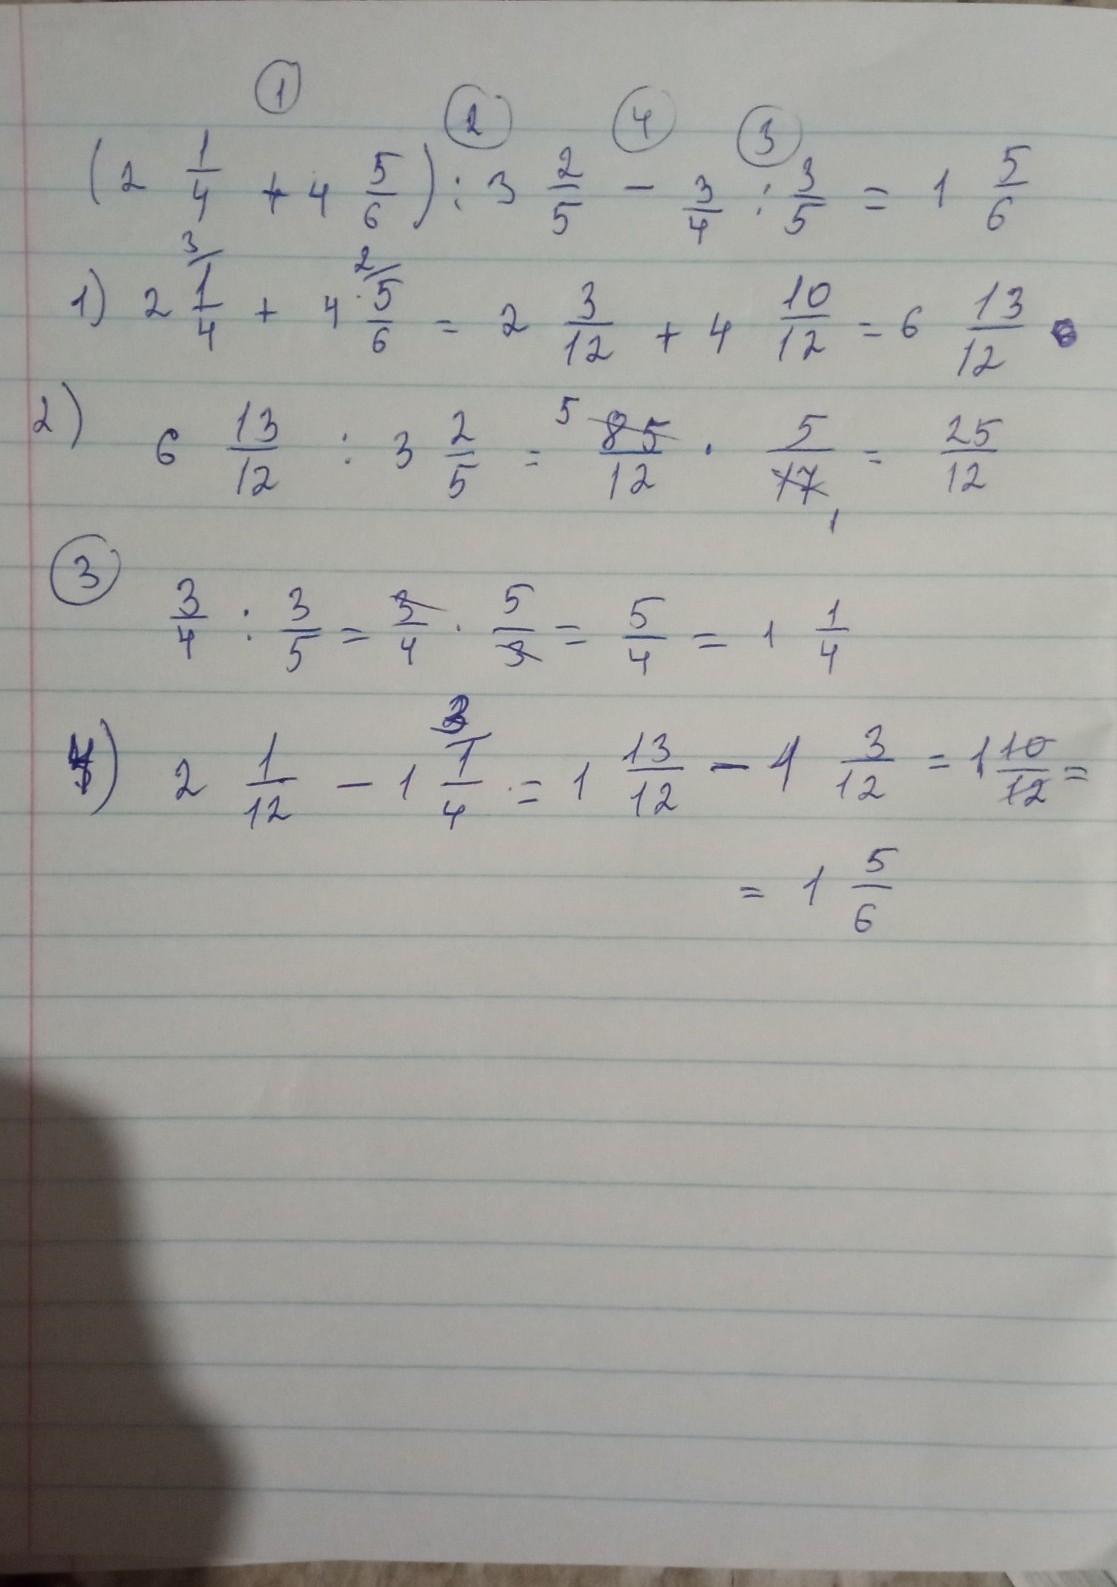 ① ② ④ ③
(2 1/4 + 4 5/6) : 3 2/5 - 3/4 : 3/5 = 1 5/6
1) 2 3/ 1/4 + 4 2/ 5/6 = 2 3/12 + 4 10/12 = 6 13/12
2) 6 13/12 : 3 2/5 = 5 85/12 · 5/17 1 = 25/12
③ 3/4 : 3/5 = 3/4 · 5/3 = 5/4 = 1 1/4
4) 2 1/12 - 1 3/ 1/4 = 1 13/12 - 1 3/12 = 1 10/12 =
= 1 5/6